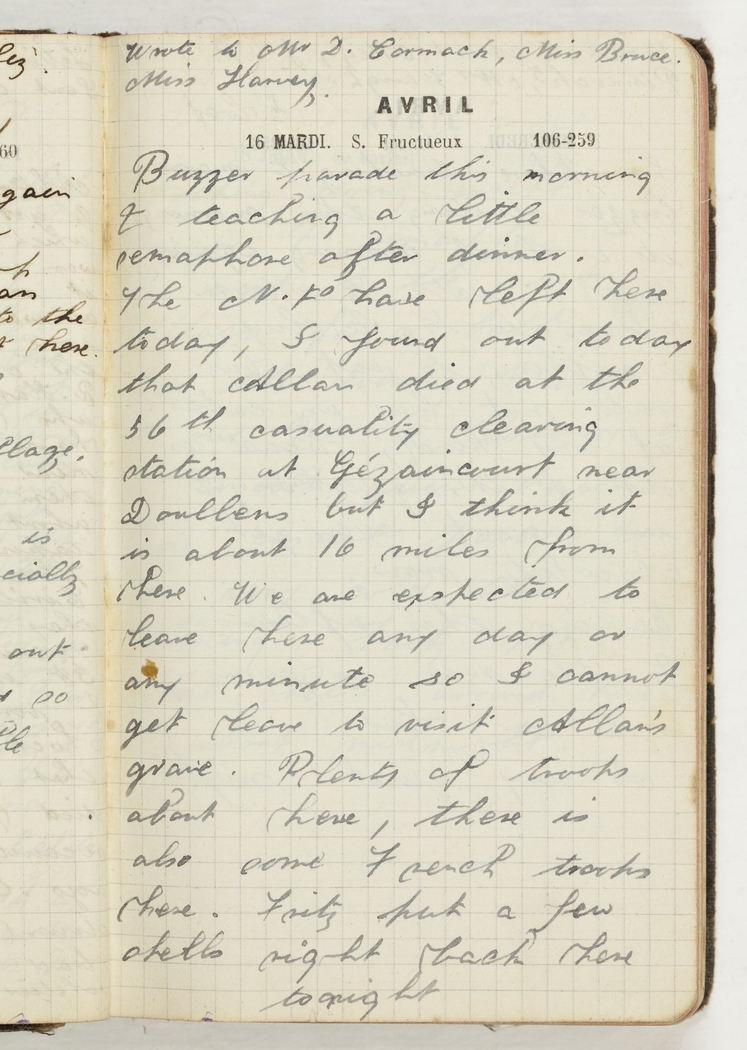 Wrote to Mr D. Cormack, Miss Bruce.
Miss Harvey.
AVRIL
16 MARDI. S. Fructueux 106-259
Buzzer parade this morning
& teaching a little
semaphore after dinner.
The N. have left here
today, I found out today
that Allan died at the
56th casuality clearing
station at Gézaincourt near
Doullens but I think it
is about 16 miles from
here. We are expected to
leave here any day or
any minute so I cannot
get leave to visit Allan's
grave. Plenty of troops
about here, there is
also some French troops
here. Fritz put a few
shells right back here
tonight
60
gain
to the
here.
llage.
is
cially
out
so